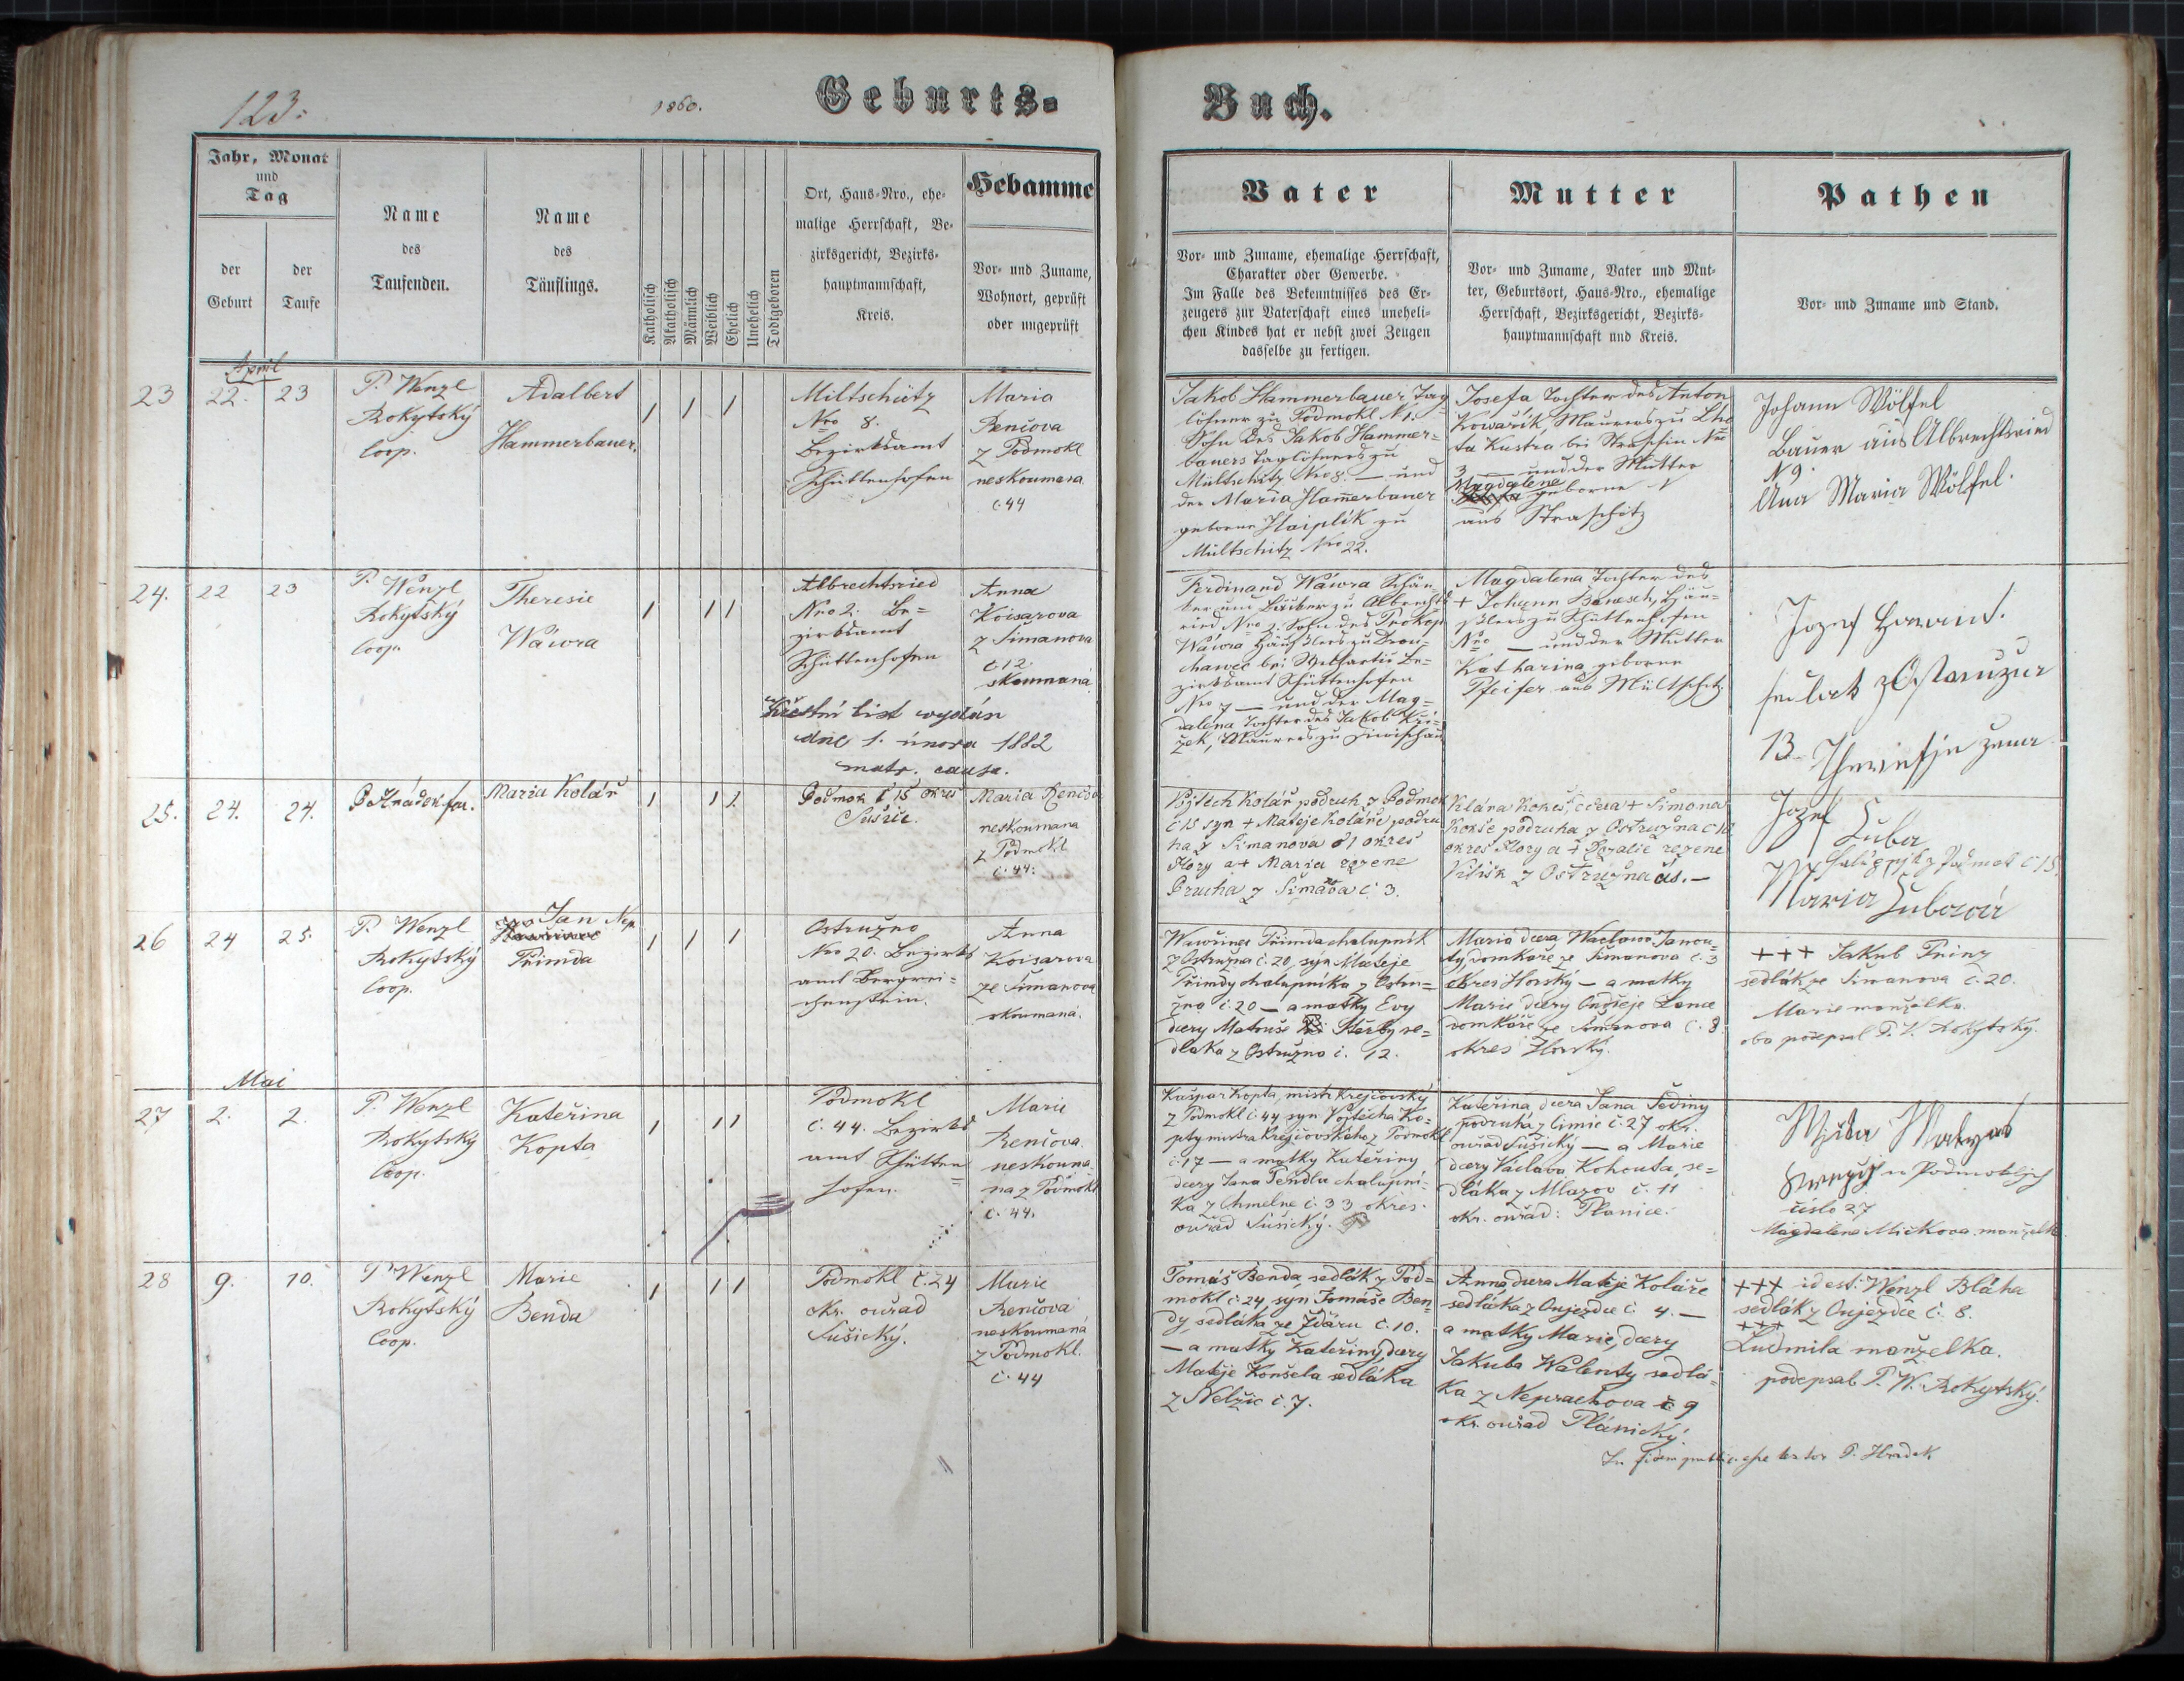 123.
1860.
Geburts-
Buch.
Jahr, Monat
und
Tag
der
Geburt
der
Taufe
Name
des
Taufenden.
Name
des
Täuflings.
Katholisch
Akatholisch
Männlich
Weiblich
Ehelich
Unehelich
Todtgeboren
Ort, Haus-Nro., ehe-
malige Herrschaft, Be-
zirksgericht, Bezirks-
hauptmannschaft,
Kreis.
Hebamme
Vor- und Zuname,
Wohnort, geprüft
oder ungeprüft
Vater
Vor- und Zuname, ehemalige Herrschaft,
Charakter oder Gewerbe.
Im Falle des Bekenntnisses des Er-
zeugers zur Vaterschaft eines uneheli-
chen Kindes hat er nebst zwei Zeugen
dasselbe zu fertigen.
Mutter
Vor- und Zuname, Vater und Mut-
ter, Geburtsort, Haus-Nro., ehemalige
Herrschaft, Bezirksgericht, Bezirks-
hauptmannschaft und Kreis.
Pathen
Vor- und Zuname und Stand.
April
23
22.
23
P. Wenzl
Rokytský
Coop.
Adalbert
Hammerbauer.
1 1 1
Miltschütz
Nro 8.
Bezirksamt
Schüttenhofen
Maria
Renčova
z Podmokl
neskoumana
č. 44
Jakob Hammerbauer Tag
löhner zu Podmokl N. 1.
Sohn des Jakob Hammer=
bauers Taglöhners zu
Miltschitz Nro 8. — und
der Maria Ham̄erbauer
geborne Haiplik zu
Miltschitz Nro 22.
Josefa Tochter des Anton
Kowařik, Maurers zu Lho
ta Kustra bei Straschin Nro
3 — und der Mutter
Magdalena
geborne
aus Straschitz
Johann Wölfel
Bauer aus Albrechtsried
N 9.
Ana Maria Wölfel.
24.
22
23
P. Wenzl
Rokytský
Coop.
Theresie
Wáwra
1 1 1
Albrechtsried
Nro 2. Be=
zirksamt
Schüttenhofen
Anna
Koisarova
z Šimanova
č 12
skoumaná
Křestní list vydán
dne 1. února 1882
matr. causa.
Ferdinand Wáwra
zu Albrechts
ried Nro 2. Sohn des Prokop
Wáwra Häuslers zu
bei Be=
zirksamt Schüttenhofen
Nro 7 — und der Mag=
dalena Tochter des Jakob Kři=
žek, Maurers zu Diwischau
Magdalena Tochter des
+ Johann Banesch, Häu=
slers zu Schüttenhofen
Nro — und der Mutter
Katharina geborne
Pfeifer aus Miltschitz
Jozef
sedlak z Ostruzna
13
Theresie zena
25.
24.
24.
P. Hrádek far.
Maria Kolář
1 1 1
Podmok č 15 okres
Sušic.
Maria Renčova
neskoumana
z Podmokl
č. 44.
Vojtěch Kolář podruh z Podmok
č 15 syn + Matěje Koláře podru
ha z Šimanova č 1 okres
Hory a + Maria rozene
Prucha z Šimanova č 3.
Klára Kokeš, dcera + Šimona
Kokše podruha z Ostružna č 10
okres Hory a + Rozalie rozene
Vilišk z Ostružna č 5. —
Jozef
Luba
z Podmok č 15
Maria Lubová
26
24
25.
P. Wenzl
Rokytský
Coop.
Jan Nep.
Přimda
1 1 1
Ostružno
Nro 20. Bezirks
amt Bergrei=
chenstein.
Anna
Koisarova
ze Šimanova
skoumana.
Wawřinec Přimda chalupník
z Ostružna č. 20, syn Matěje
Přimdy chalupníka z Ostru=
žna č. 20 — a matky Evy
dcery Matouše Štěrby se=
dláka z Ostružna č. 12.
Maria dcera Waclawa Janou=
ty, domkáře ze Šimanova č. 3
okres Horský — a matky
Marie dcery Ondřeje Lence
domkáře ze Šimanova č. 8
okres Horský.
+++ Jakub Prinz
sedlák ze Šimanova č. 20.
Marie manželka.
oba podepsal P. V. Rokytský.
Mai
27
2.
2.
P. Wenzl
Rokytský
Coop.
Kateřina
Kopta
1 1 1
Podmokl
č. 44. Bezirks
amt Schütten=
hofen.
Marie
Renčova
neskouma
na z Podmokl
č. 44.
Kašpar Kopta, mistr krejčovský
z Podmokl č. 44 syn Vojtěcha Ko=
pty mistra krejčovského z Podmokl
č. 17 — a matky Kateřiny
dcery Jana Pendla chalupni=
ka z Chmelne č. 33 okres.
ouřad Sušický.
Kateřina, dcera Jana Šediny
podruha z Čimic č. 27 okr.
ouřad Sušický — a Marie
dcery Václava Kohouta, se=
dláka z Mlazov č. 11
okr. ouřad: Planice.
Mička Matyas
w Podmoklich
čislo 27
Magdalena Mičkova manželka
28
9.
10.
P. Wenzl
Rokytský
Coop.
Marie
Benda
1 1 1
Podmokl č. 24
okr. ouřad
Sušický.
Marie
Renčova
neskoumaná
z Podmokl.
č. 44
Tomáš Benda, sedlák z Pod=
mokl č. 24, syn Tomáše Ben
dy, sedláka ze Ždáru č. 10.
— a matky Kateřiny, dcery
Matěje Konšela sedláka
z Nelžic č. 7.
Anna dcera Matěje Koláře
sedláka z Oujezdce č. 4. —
a matky Marie, dcery
Jakuba Walenty sedlá=
ka z Neprachova č 9
okr. ouřad Plánický.
+++ id est: Wenzl Bláha
sedlák z Oujezdce č. 8.
+++
Ludmila manželka.
podepsal P. W. Rokytský.
In fidem publicae testor P. Hradek